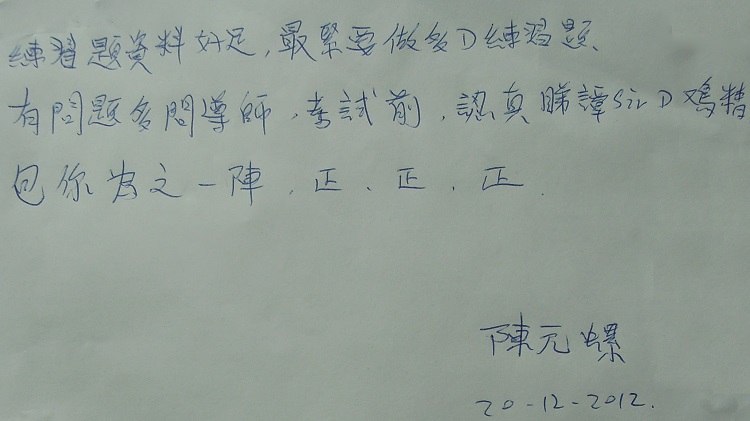 練習題資料好足,最緊要做多D練習題、
有問題多問導師,考試前,認真睇譚Sir D鸡精
包你為之一陣、正、正、正.
陳元螺
20-12-2012.